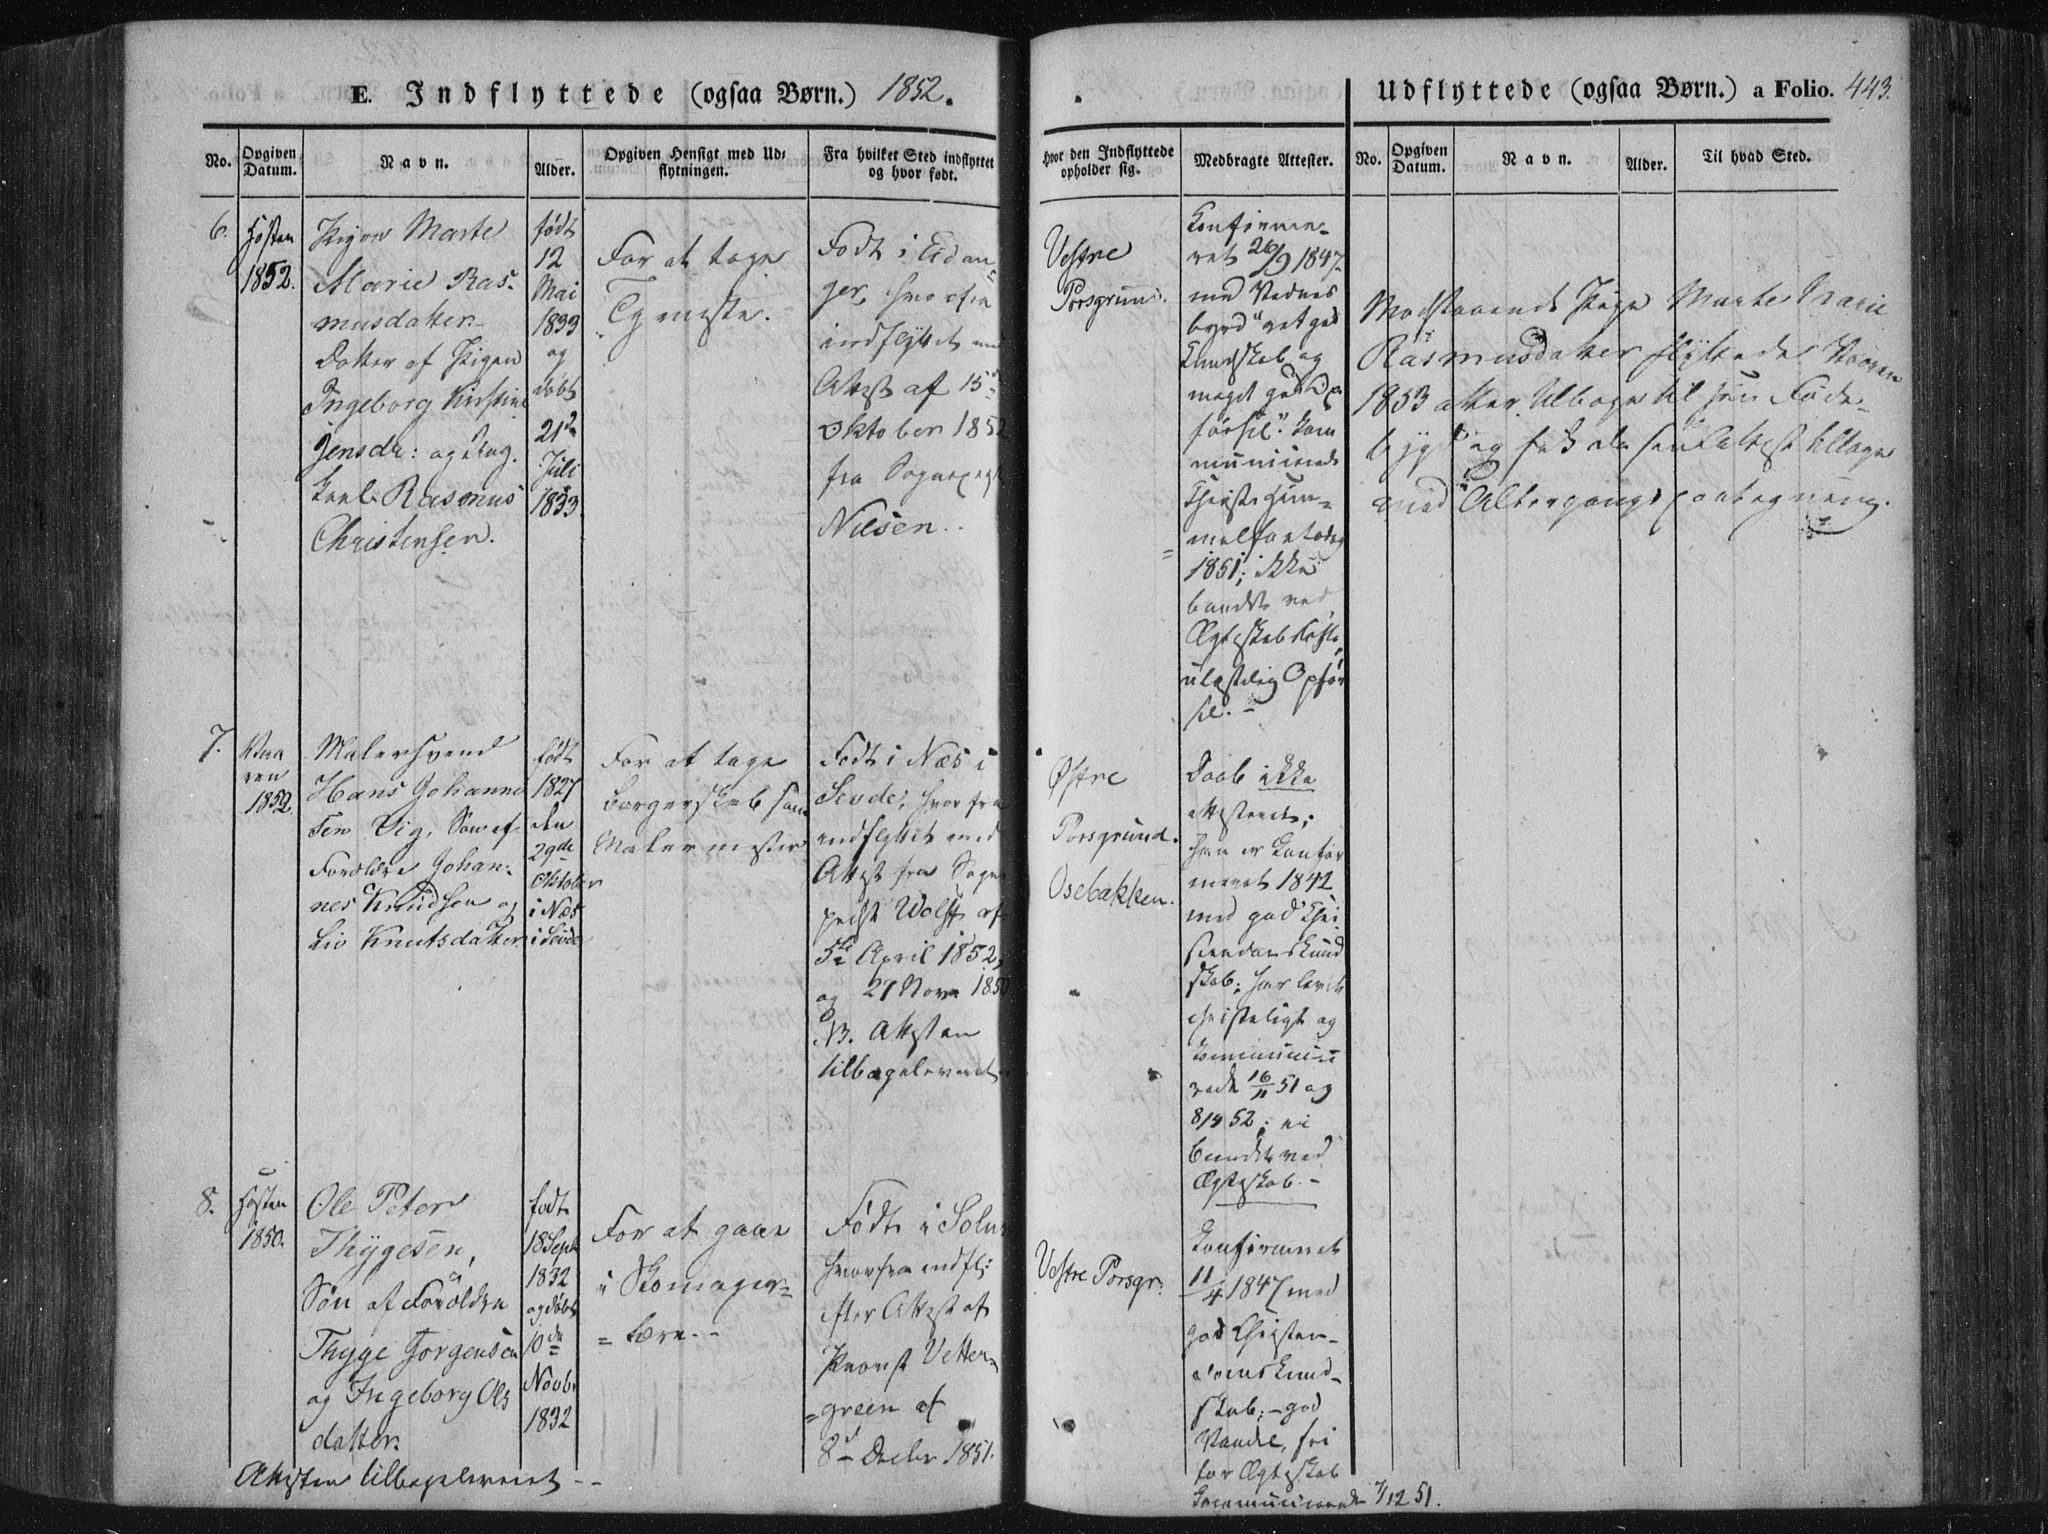 E. Indflyttede (ogsaa Børn.) 1852.
No.
Opgiven Datum.
Navn.
Alder.
Opgiven Hensigt med Ud-
flytningen.
Fra hvilket Sted indflyttet
og hvor født.
Hvor den Indflyttede
opholder sig.
Medbragte Attester.
6.
Høsten
1852.
Pigen Marte
Marie Ras-
musdatter
Datter af Pigen
Ingeborg Kirstine
Jensdr: og Ung-
karl Rasmus
Christensen.
født
12
Mai
1833
og
døbt
21de
Juli
1833
For at tage
Tjeneste.
Født i Eidan-
ger, hvorfra
indflyttet med
Attest af 15de
Oktober 1852
fra Sognepræst
Nilsen.
Vestre
Porsgrund.
Confirme-
ret 26/9 1847
med Vidnes-
byrd "ret god
Kundskab og
meget god Op-
førsel". Com-
municerede
Christi Him-
melfartsdag
1851; ikke
bundet ved
Ægteskabsløfte,
ulastelig Opfør-
sel. -
7.
Vaa-
ren
1852.
Malersvend
Hans Johanne-
sen Vig, Søn af
Forældre Johan-
nes Knudsen og
Liv Knutsdatter
født
1827
den
29de
Oktober
i Næs
i Sevde
For at tage
Borgerskab som
Malermester
Født i Næs i
Sevde, hvorfra
indflyttet med
Attest fra Sogne-
præst Wolff af
5te April 1852,
og 27 Novr 1850
NB. Attesten
tilbageleveret
Østre
Porsgrund.
Osebakken.
Daab ikke
attesteret;
han er Confir-
meret 1842
med god Chri-
stendomskund-
skab; har levet
christeligt og
communice-
rede 16/11 51 og
8/4 52; ei
bundet ved
Ægteskab. -
8.
Høsten
1850.
Ole Peter
Thygesen,
Søn af Forældre
Thyge Jørgensen
og Ingeborg Ols-
datter.
født
18 Sept
1832
og døbt
10de
Novbr
1832
For at gaae
i Skomager-
= lære. -
Født i Solum
hvorfra indfl:
efter Attest af
Provst Vetter-
= green af
8de Decbr 1851.
Vestre Porsgr:
Confirmeret
11/4 1847 med
god Christen-
domskund-
skab; - god
Vandel, fri
for Ægteskab
Communicerede 7/12 51.
Attesten tilbageleveret - -
Udflyttede (ogsaa Børn.) a Folio. 443.
No.
Opgiven Datum.
Navn.
Alder.
Til hvad Sted.
Modstaaende Pige Marte Marie
Rasmusdatter flyttede Vaaren
1853 atter tilbage til sin Føde-
bygd og fik da sin Attest tilbage
med Altergangs paategning.